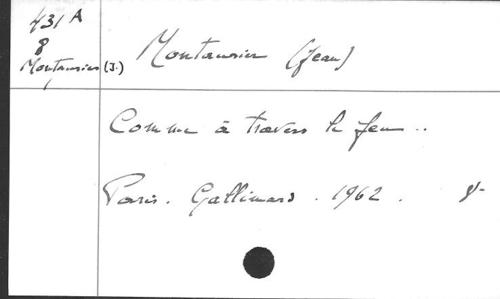 431 A
8
Montaurier (J.)
Montaurier (Jean)
Comme à travers le feu..
Paris. Gallimard. 1962. 8-